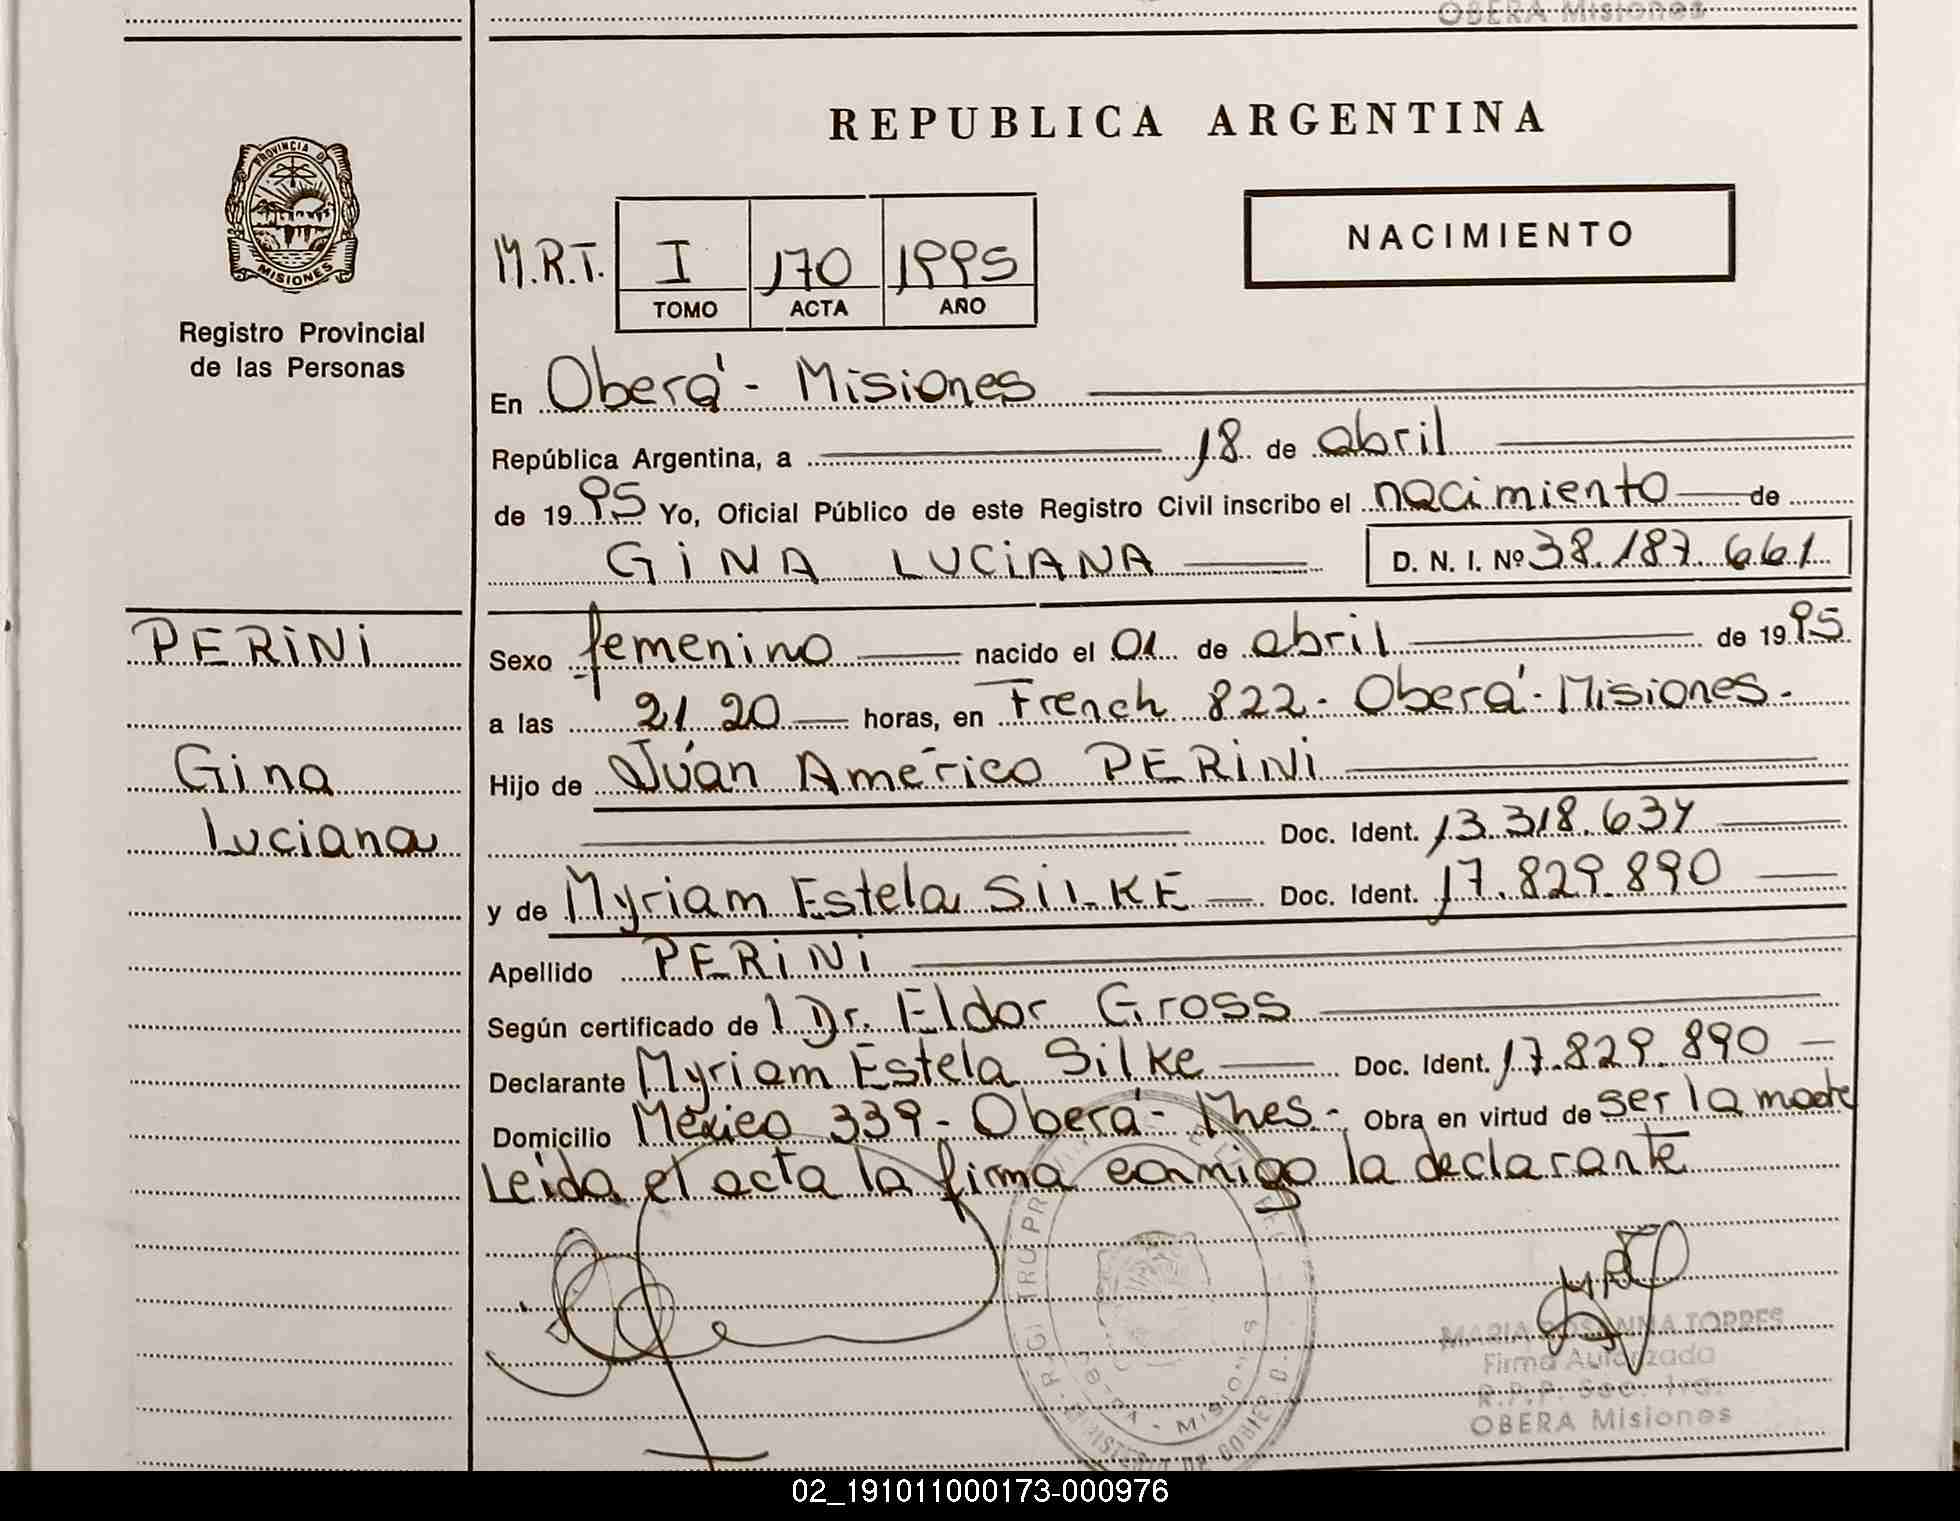 OBERA Misiones
REPUBLICA ARGENTINA
PROVINCIA D
MISIONES
Registro Provincial
de las Personas
NACIMIENTO
M.R.T. I 170 1995
TOMO ACTA AÑO
En Oberá - Misiones
República Argentina, a 18 de abril
de 1995 Yo, Oficial Público de este Registro Civil inscribo el nacimiento de
GINA LUCIANA D. N. I. Nº 38.187.661
PERINI
Gina
Luciana
Sexo femenino nacido el 01 de abril de 1995
a las 21 20 horas, en French 822 - Oberá - Misiones -
Hijo de Juán Américo PERINI
Doc. Ident. 13.318.634
y de Myriam Estela SILKE Doc. Ident. 17.829.890
Apellido PERINI
Según certificado de Dr. Eldor Gross
Declarante Myriam Estela Silke Doc. Ident. 17.829.890
Domicilio México 339 - Oberá - Mnes - Obra en virtud de ser la madre
Leida el acta la firma conmigo la declarante
MARIA ROSANNA TORRES
Firma Autorizada
OBERA Misiones
02_191011000173-000976